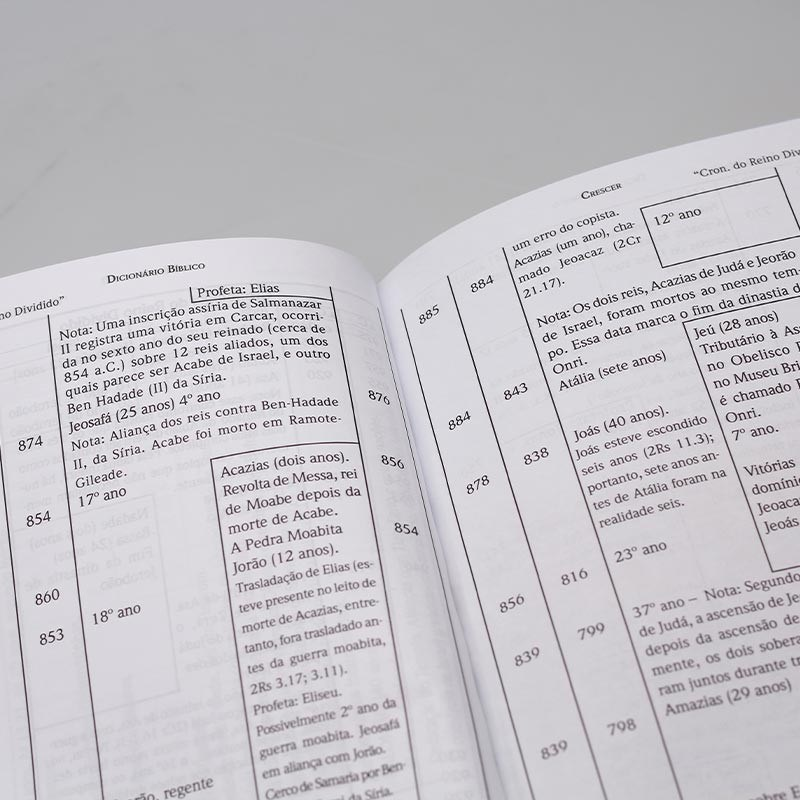 no Dividido"
Dicionário Bíblico
Profeta: Elias
Nota: Uma inscrição assíria de Salmanazar
II registra uma vitória em Carcar, ocorri-
da no sexto ano do seu reinado (cerca de
854 a.C.) sobre 12 reis aliados, um dos
quais parece ser Acabe de Israel, e outro
Ben Hadade (II) da Síria.
874
Jeosafá (25 anos) 4º ano
876
Nota: Aliança dos reis contra Ben-Hadade
II, da Síria. Acabe foi morto em Ramote-
Gileade.
854
17º ano
856
Acazias (dois anos).
Revolta de Messa, rei
de Moabe depois da
morte de Acabe.
A Pedra Moabita
860
854
Jorão (12 anos).
853
18º ano
Trasladação de Elias (es-
teve presente no leito de
morte de Acazias, entre-
tanto, fora trasladado an-
tes da guerra moabita,
2Rs 3.17; 3.11).
Profeta: Eliseu.
Possivelmente 2º ano da
guerra moabita. Jeosafá
em aliança com Jorão.
Cerco de Samaria por Ben-
da Síria.
regente
Crescer
"Cron. do Reino Div
um erro do copista.
885
884
Acazias (um ano), cha-
mado Jeoacaz (2Cr
21.17).
12º ano
Nota: Os dois reis, Acazias de Judá e Jeorão
de Israel, foram mortos ao mesmo tem-
po. Essa data marca o fim da dinastia d
Onri.
884
843
Atália (sete anos)
Jeú (28 anos)
Tributário à As
no Obelisco
no Museu Bri
é chamado
Onri.
878
838
Joás (40 anos).
7º ano.
Joás esteve escondido
seis anos (2Rs 11.3);
portanto, sete anos an-
tes de Atália foram na
realidade seis.
Vitórias
domíni
Jeoaca
Jeoás
856
816
23º ano
839
799
37º ano – Nota: Segundo
de Judá, a ascensão de Je
depois da ascensão de
mente, os dois sobera
ram juntos durante t
839
798
Amazias (29 anos)